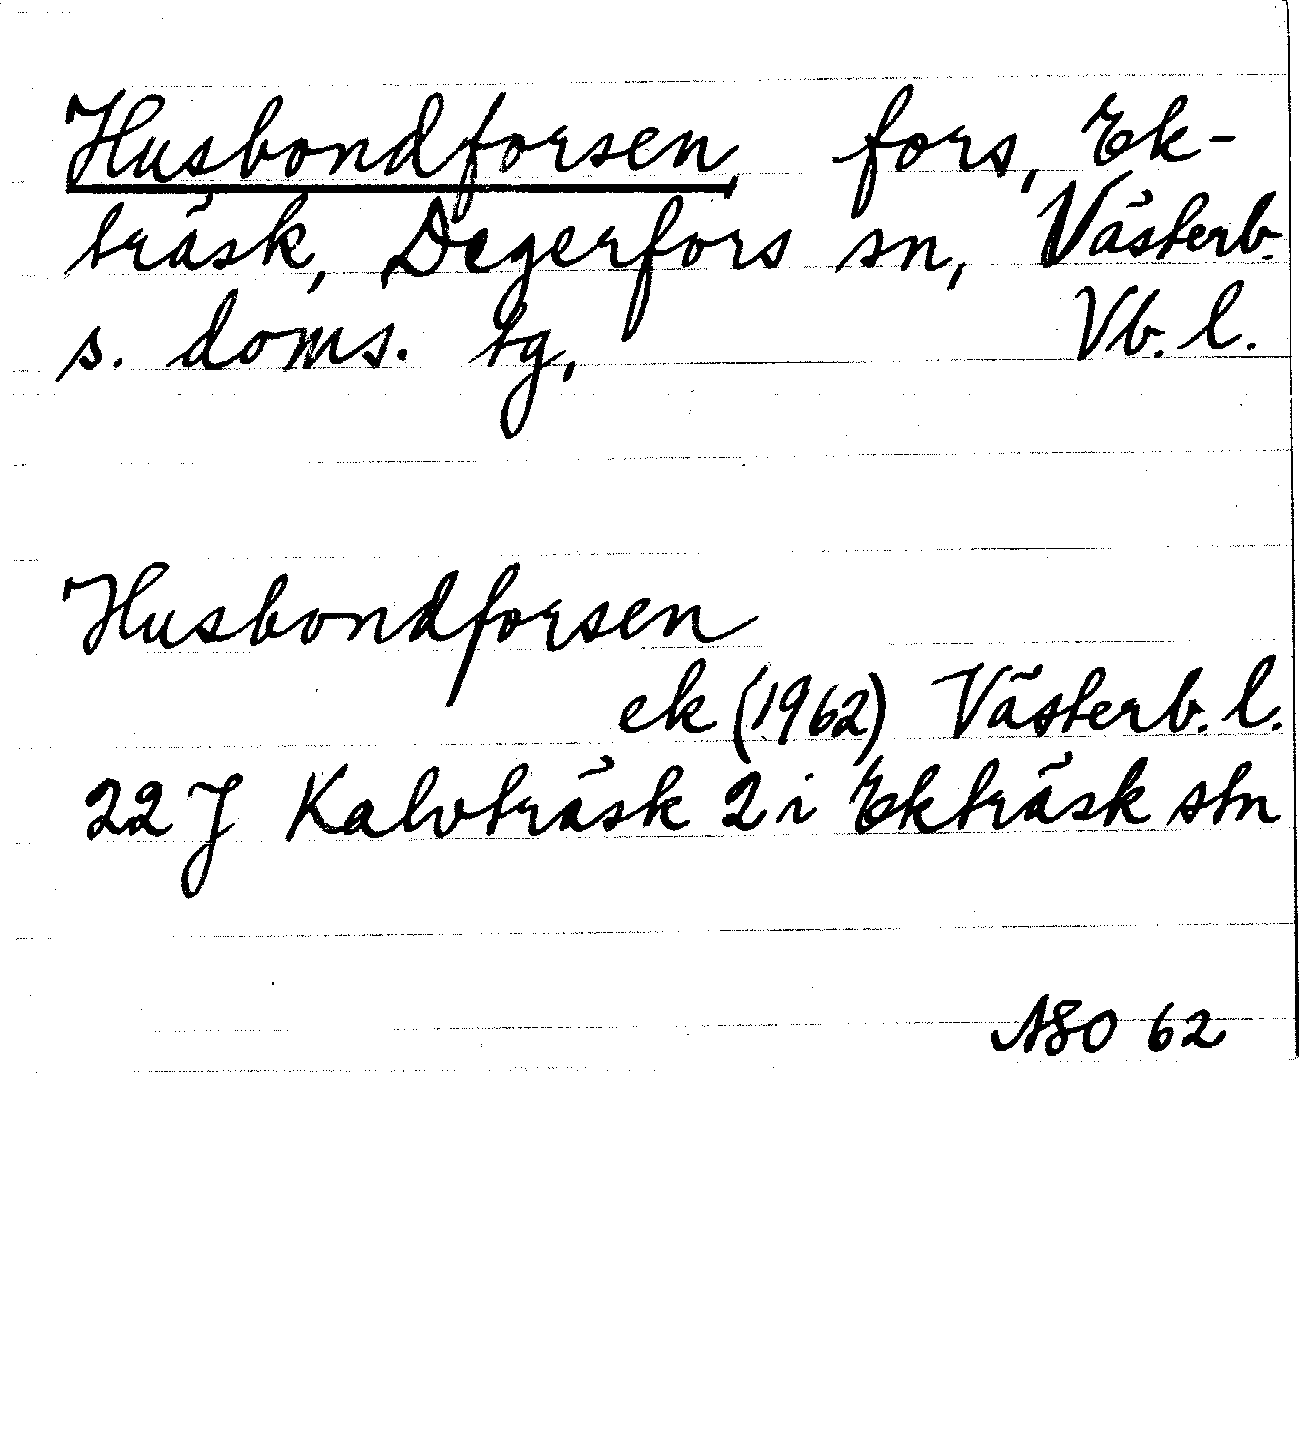 Husbondforsen, fors, Ek-
träsk, Degerfors sn, Västerb.
s. doms. tg, Vb. l.
Husbondforsen
ek (1962) Västerb. l.
22 J Kalvträsk 2 i Ekträsk stn
ASO 62